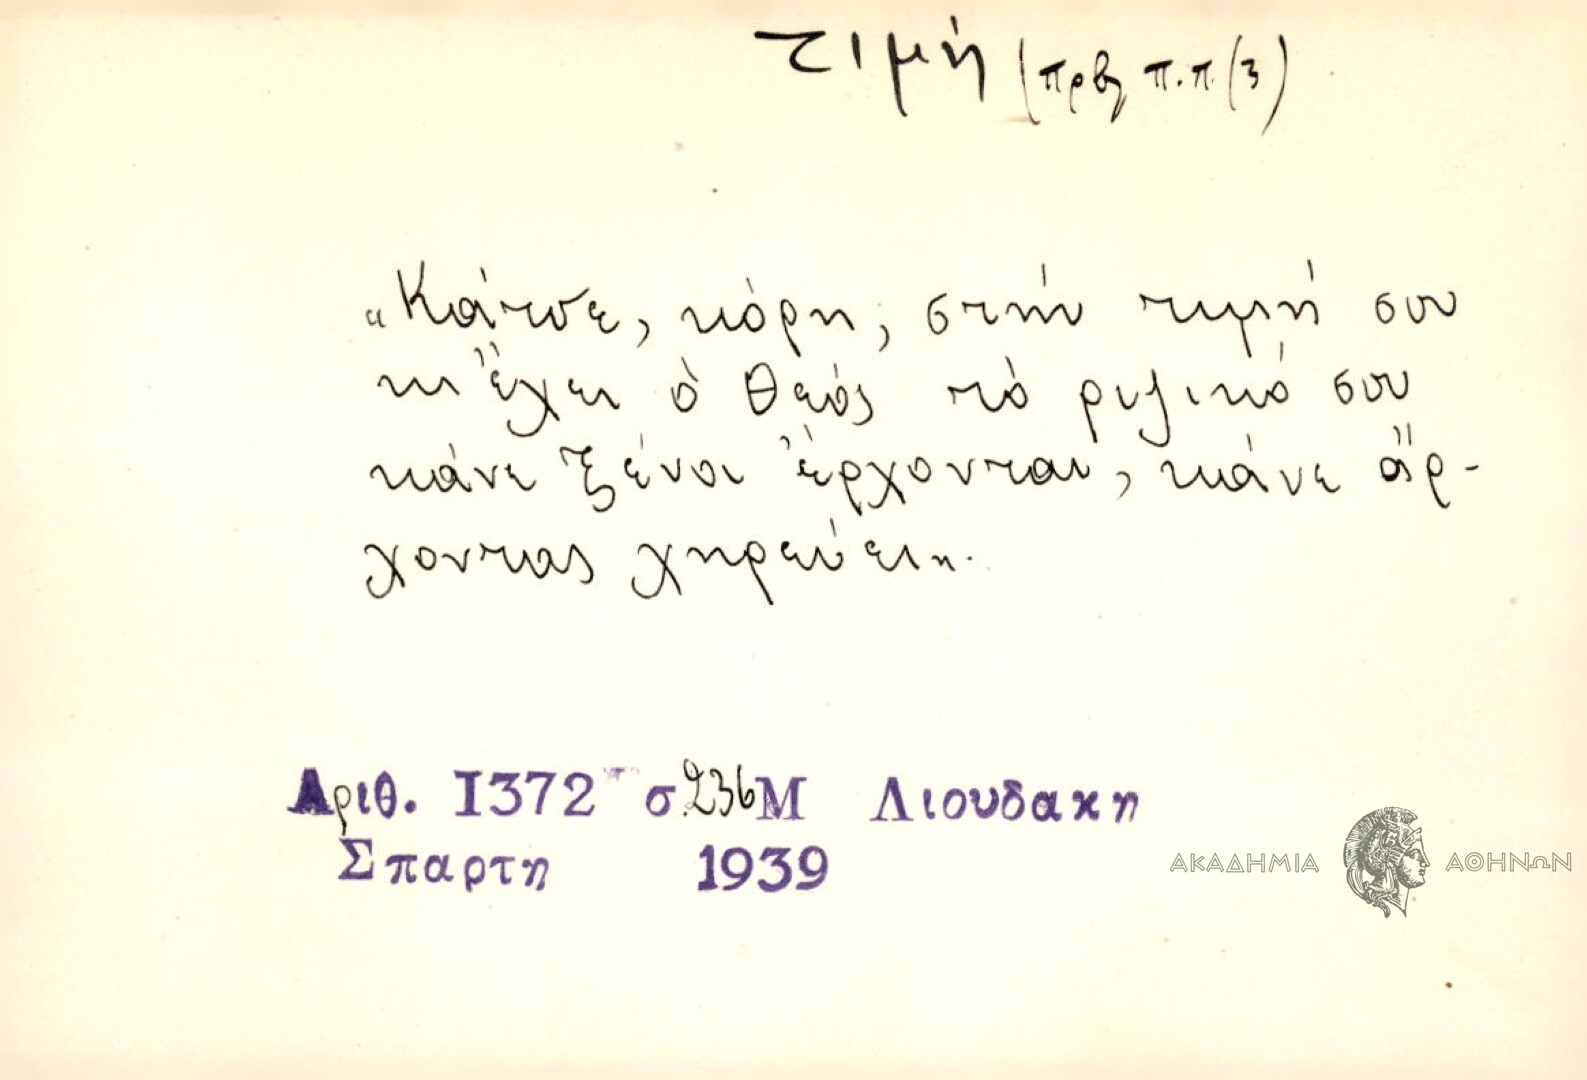 τιμή (πρβ π.π (3)
«Κάτσε, κόρη, στὴν τιμή σου
κι ἔχει ὁ Θεὸς τὸ ριζικό σου
κάνε ξένοι ἔρχονται, κάνε ἄρ-
χοντας χηρεύει».
Αριθ. 1372 σ. 236 Μ Λιουδακη
Σπαρτη 1939
ΑΚΑΔΗΜΙΑ ΑΘΗΝΩΝ